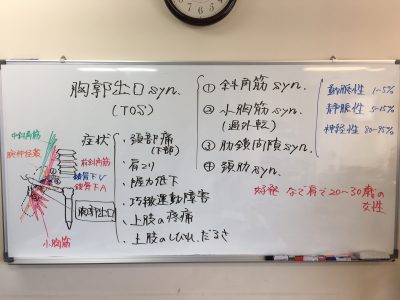 胸郭出口syn.
(TOS)
① 斜角筋syn.
② 小胸筋syn.
(過外転)
③ 肋鎖間隙syn.
④ 頚肋syn.
動脈性 1~5%
静脈性 5~15%
神経性 80~95%
好発 なで肩で20~30歳の
女性
中斜角筋
腕神経叢
前斜角筋
鎖骨下V
鎖骨下A
胸郭出口
小胸筋
症状
・頚部痛
(下部)
・肩こり
・握力低下
・巧緻運動障害
・上肢の疼痛
・上肢のしびれ、だるさ